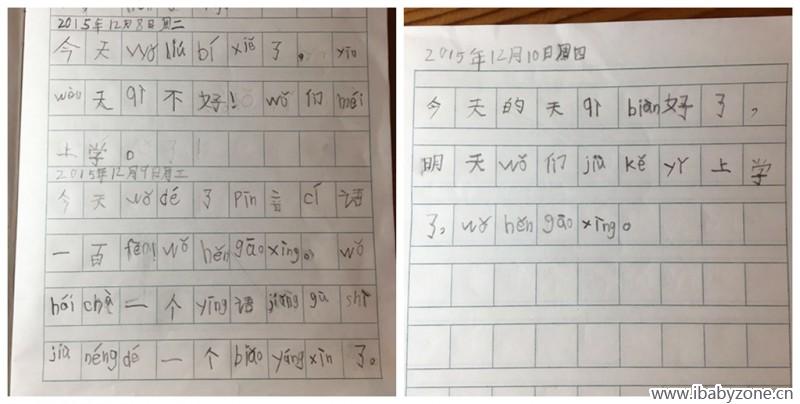 2015年12月8日周二
今天wǒ liú bí xiě了。yīn
wèi天qì不好!wǒ们méi
上学。
2015年12月9日周三
今天wǒ dé了Pīn音cí语
一百fēn!wǒ hěn gāo xìng。wǒ
hái chà一个yīng语jiǎng gù shì
jiù néng dé一个biǎo yáng xìn了。
2015年12月10日周四
今天的天qì biàn好了,
明天wǒ们jiù kě yǐ上学
了,wǒ hěn gāo xìng。
www.ibabyzone.cn